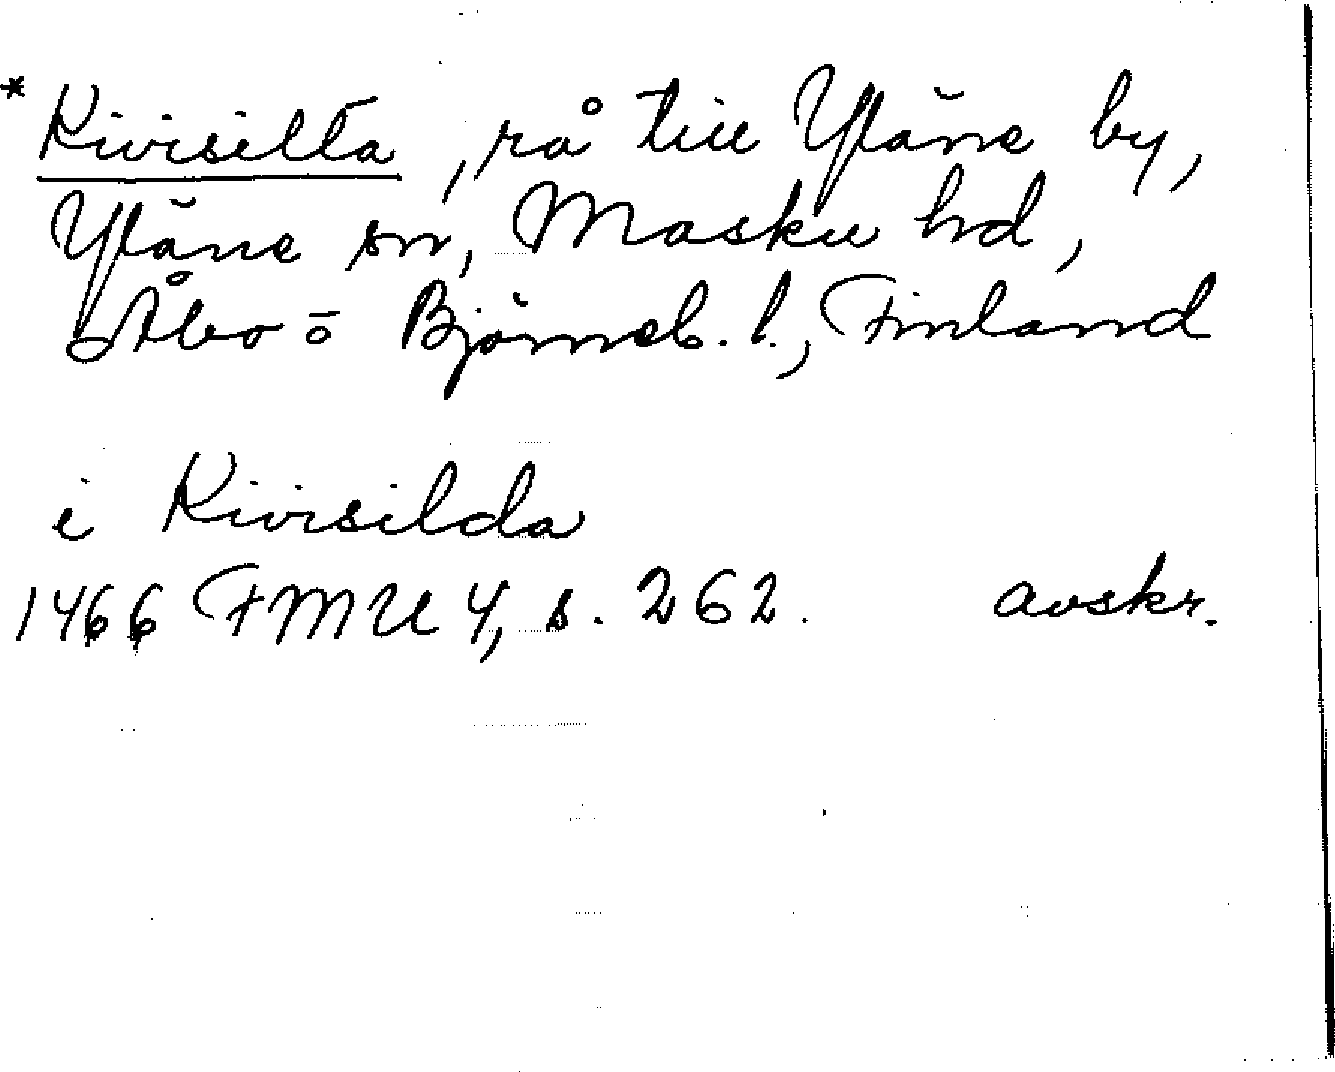 * Kivisilta, rå till Yläne by,
Yläne sn, Masku hd,
Åbo o Björneb. l., Finland
i Kivisilda
1466 FMU 4, s. 262. avskr.